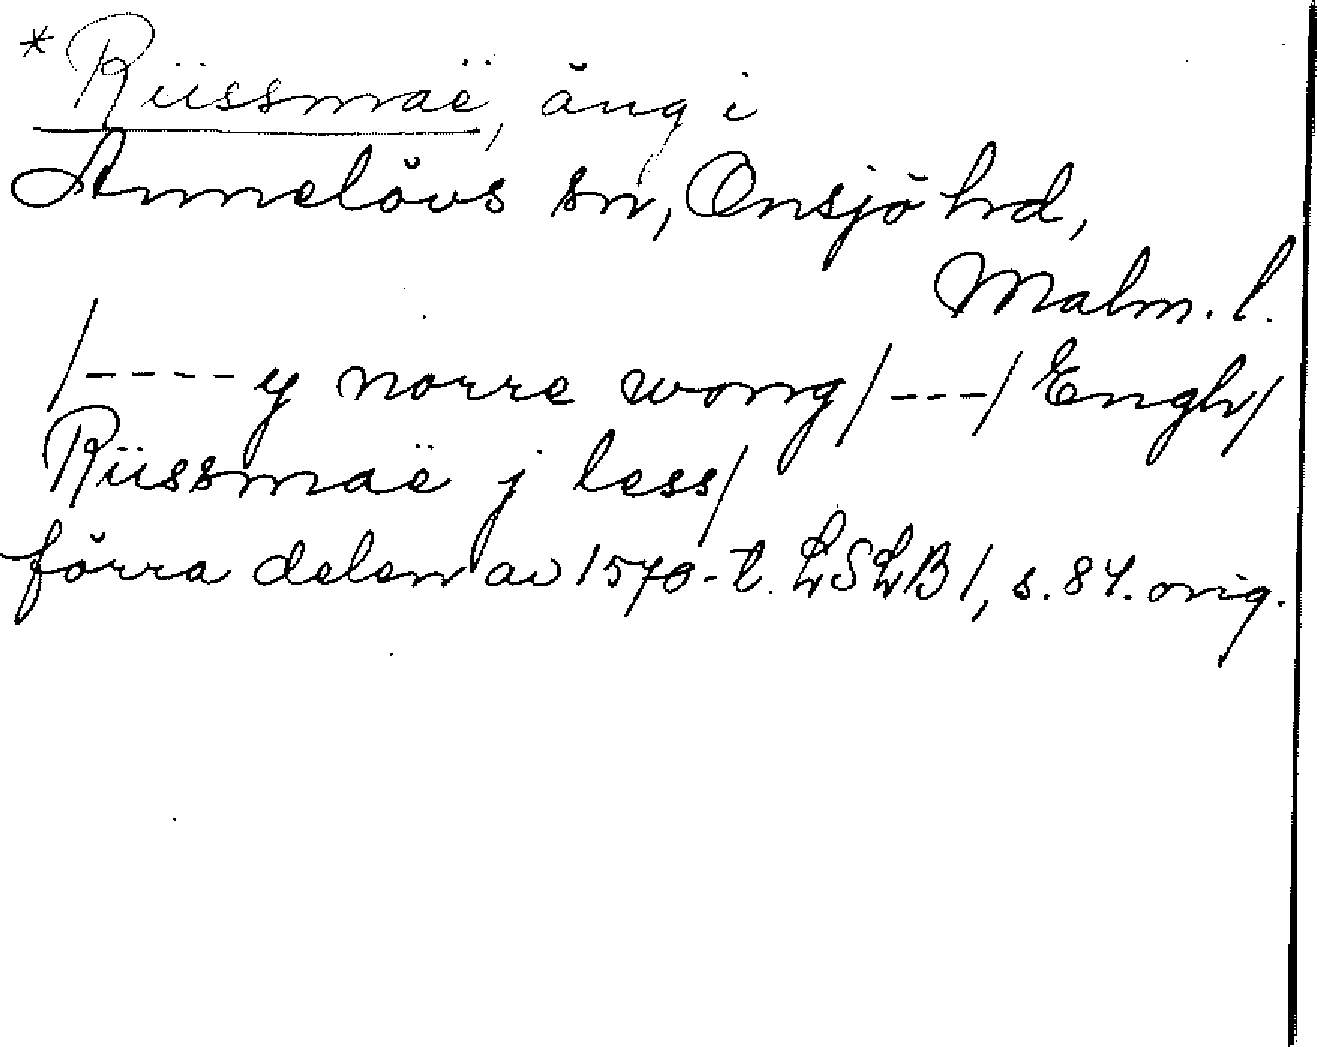 *Riissmaë, äng i
Annelövs sn, Onsjö hd,
Malm. l.
/---- y norre wong/---/ Engh/
Riissmaë j less/
förra delen av 1570-t. LSLB 1, s. 84. orig.